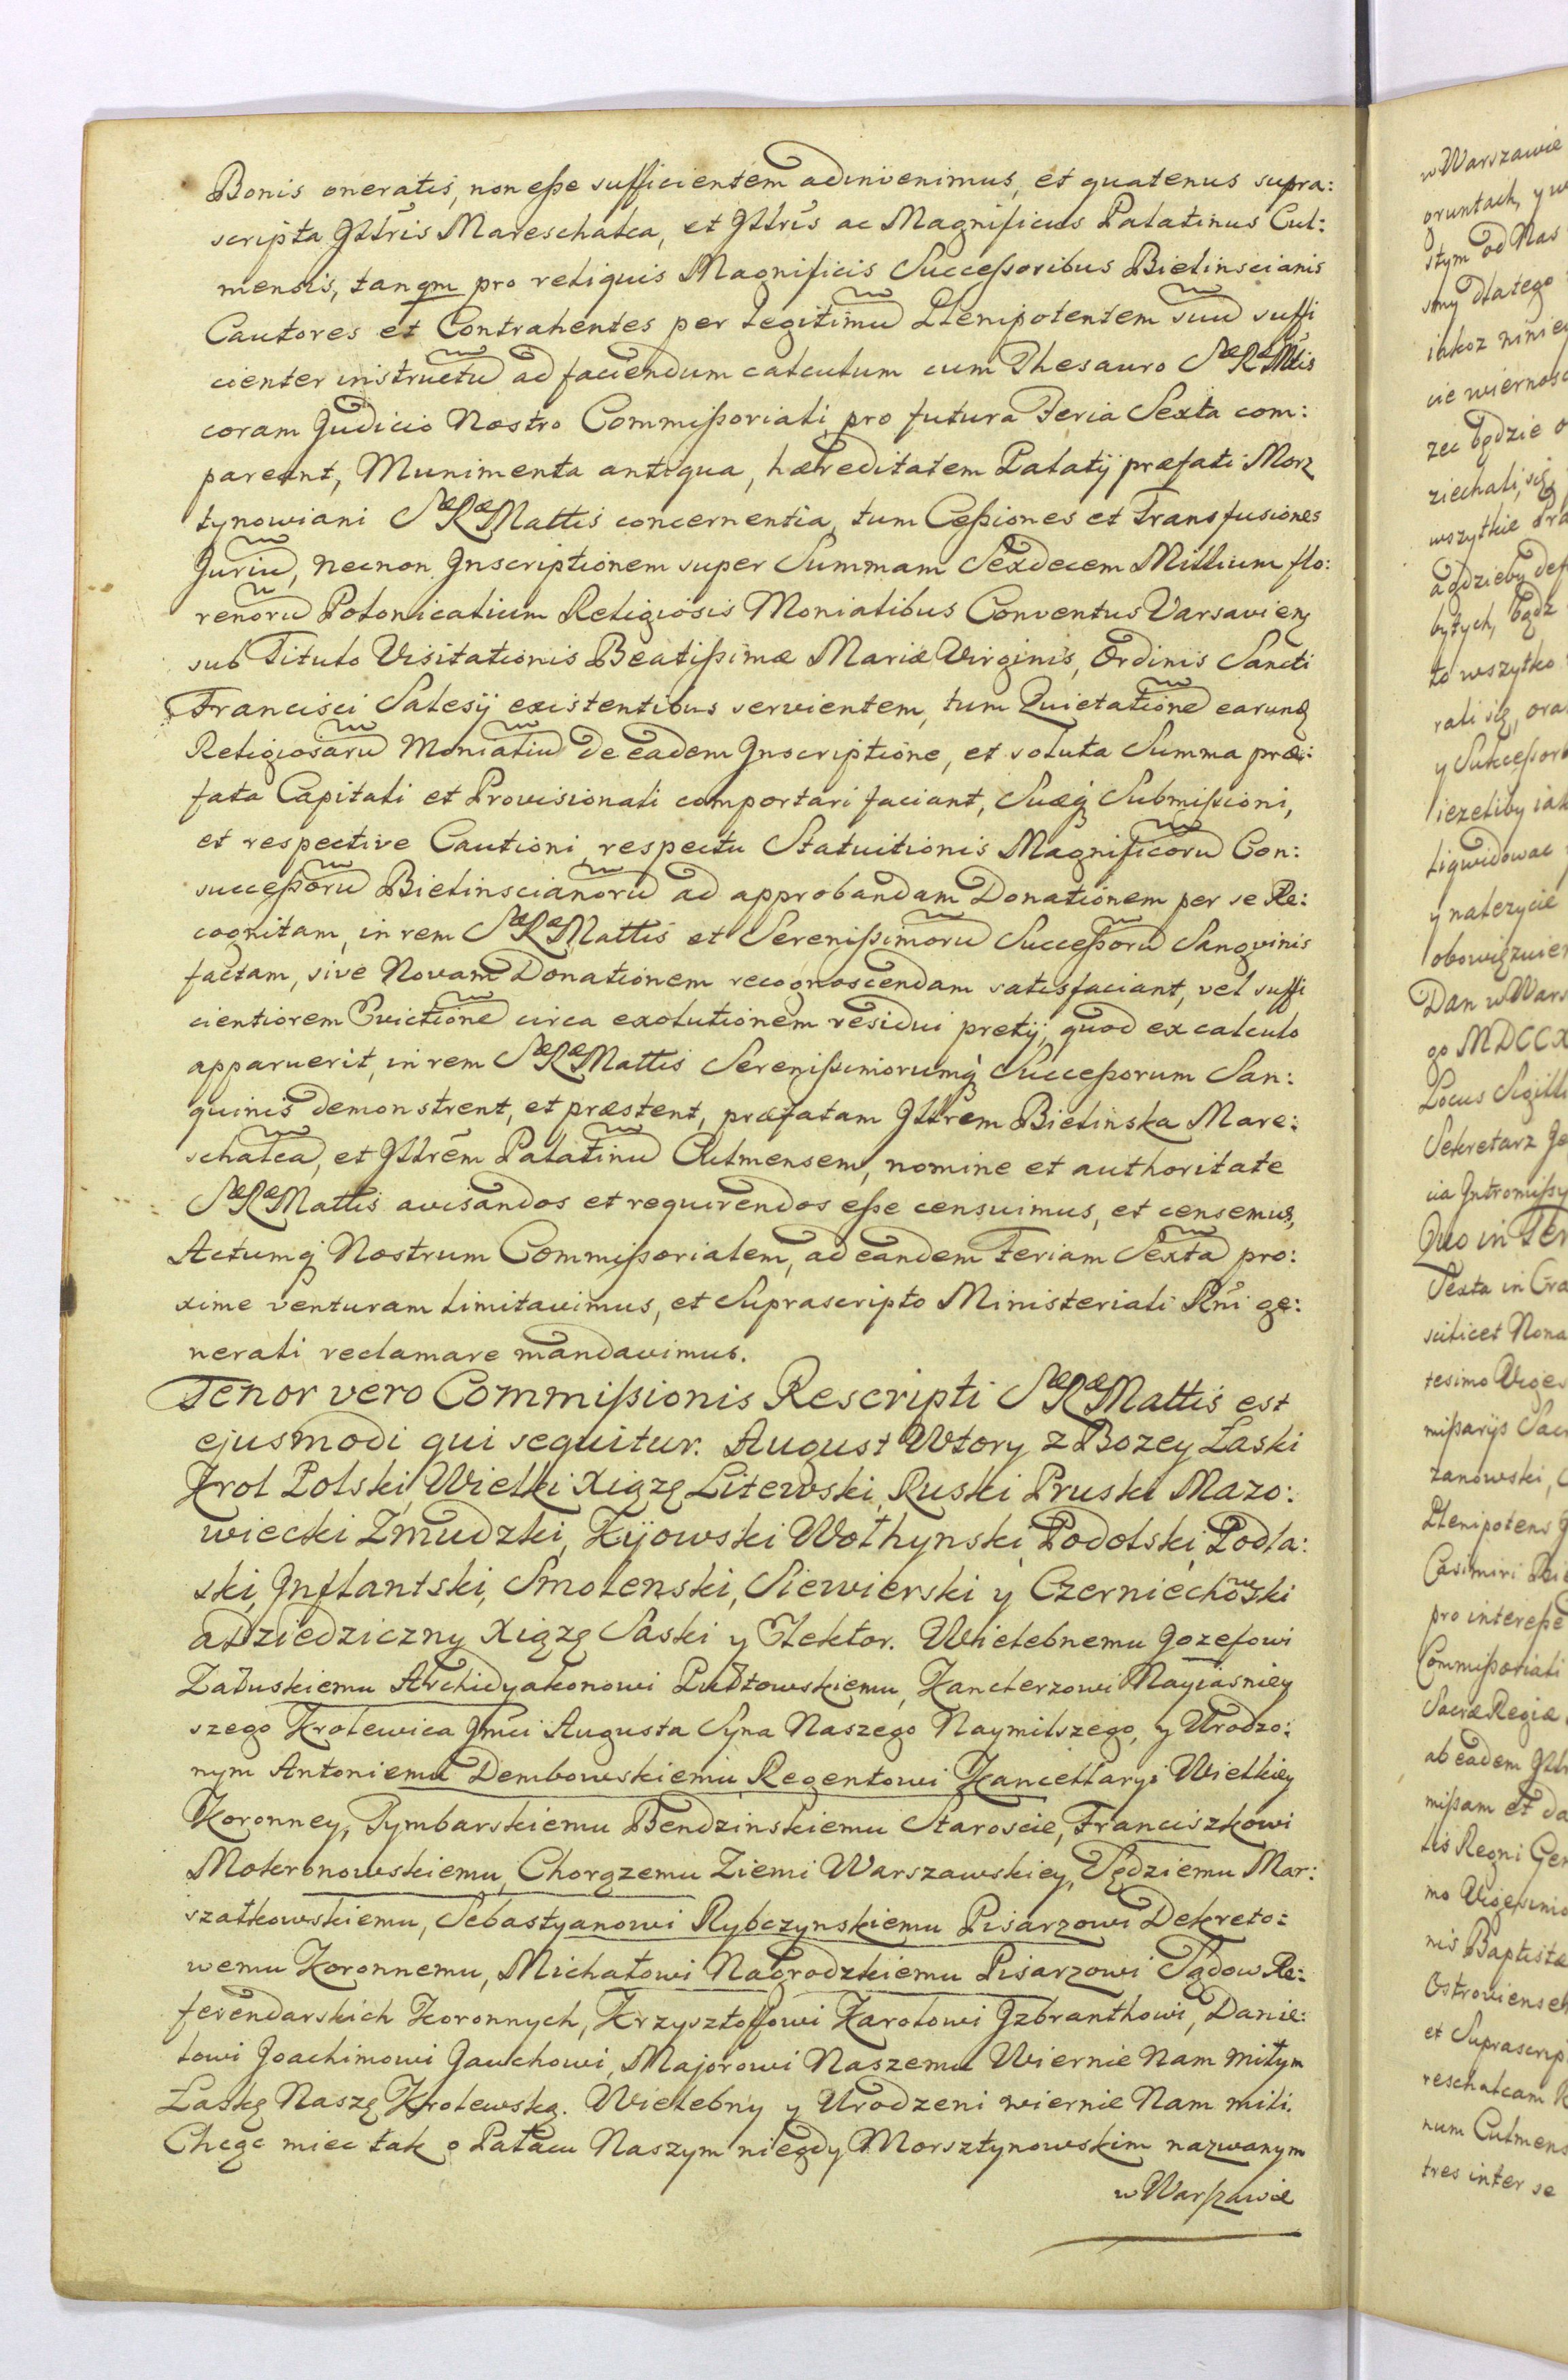 Bonis oneratis, non eße sufficientem adinvenimus, et quatenus supra:
scripta Illris Mareschalca, et Illris ac Magnificus Palatinus Cul:
mensis, tanqm pro reliquis Magnificis Succeßoribus Bielinscianis
Cautores et Contrahentes per legitimũ Plenipotentem suũ suffi
cienter instructũ ad faciendum calculum cum Thesauro SæRæMttis
coram Judicio Nostro Commißoriali pro futura Feria Sexta com:
pareant, Munimenta antiqua, hæreditatem Palatij præfati Morz
tynowiani SæRæMattis concernentia, tum Ceßiones et Transfusiones
Juriũ, necnon Inscriptionem super Summam Sexdecem Millium flo:
renorũ Polonicalium Religiosis Monialibus Conventus Varsavienȝ
sub Titulo Visitationis Beatißimæ Mariæ Virginis, Ordinis Sancti
Francisci Salesij existentibus servientem, tum Quietationẽ earunđ
Religiosarũ Monialiũ de eadem Inscriptione, et soluta Summa præ:
fata Capitali et Provisionali comportari faciant, Suæq́ Submißioni,
et respective Cautioni respectu Statuitionis Magnificorũ Con:
succeßorũ Bielinscianorũ ad approbandam Donationem per se Re:
cognitam, in rem SæRæMattis et Serenißimorũ Succeßorũ Sangvinis
factam, sive Novam Donationem recognoscendam satisfaciant, vel suffi
cientiorem Evictionẽ circa exolutionem residui pretij, quod ex calculo
apparuerit, in rem SæRæMattis Serenißimorumq́ Succeßorum San:
guinis demonstrent, et præstent, præfatam Illrem Bielinska Mare:
schalcã, et Illrẽm Palatinũ Culmensem, nomine et authoritate
SæRæMattis avisandos et requirendos eße censuimus, et censemus,
Actumq́ Nostrum Commißorialem, ad eandem Feriam Sextã pro:
xime venturam limitavimus, et Suprascripto Ministeriali Rñi ge:
nerali reclamare mandavimus.
Tenor vero Commißionis Rescripti SæRæMattis est
ejusmodi qui sequitur. August Wtory z Bozey Łaski
Krol Polski, Wielki Xiążę Litewski, Ruski Pruski Mazo:
wiecki Zmudzki, Kijowski Wołhynski, Podolski, Podla:
ski, Inflantski, Smolenski, Siewierski y Czerniechowski
a dziedziczny Xiążę Saski y Elektor. Wielebnemu Jozefowi
Załuskiemu Archidyakonowi Pułtowskiemu, Kanclerzowi Nayiasniey
szego Krolewica Jmći Augusta Syna Naszego Naymilszego, y Urodzo:
nym Antoniemu Dembowskiemu Regentowi Kancellaryi Wielkiey
Koronney, Tymbarskiemu Bendzinskiemu Staroscie, Franciszkowi
Mokronowskiemu, Chorązemu Ziemi Warszawskiey, Sędziemu Mar:
szałkowskiemu, Sebastyanowi Rybczynskiemu Pisarzowi Dekreto:
wemu Koronnemu, Michałowi Nagrodzkiemu Pisarzowi Sądow Re:
ferendarskich Koronnych, Krzysztoffowi Karolowi Jzbranthowi, Danie:
lowi Joachimowi Jauchowi, Majorowi Naszemu Wiernie Nam miłym
Łaskę Naszę Krolewską. Wielebny y Urodzeni wiernie Nam mili.
Chcąc miec tak o Pałacu Naszym niegdy Morsztynowskim nazwanym
w Warszawie
w Warszawie
gruntach, y w
stym od Nas
smy dlatego
iakoz niniey
cie wiernosc
zec będzie
ziechali się
wszytkie Pra
a gdzieby def
bytych, bądz
to wszytko
rali się, ora
y Sukceßor
iezeliby iak
Liqwidowac
y nalezycie
obowięzuie
Dan w Wars
go MDCCX
Locus Sigilli
Sekretarz Je
cia Intromißy
Quo in Ter
Sexta in Cra
scilicet Nona
tesimo Viges
mißarijs Sacr
zanowski,
Plenipotens
Casimiri Bie
pro intereße
Commißoriali
Sacræ Regiæ
ab eadem Illr
mißam et da
lis Regni Gen
mo Vigesimo
nis Baptistæ
Ostroviensem
et Suprascrip
reschalcam R
num Culmens
tres inter se